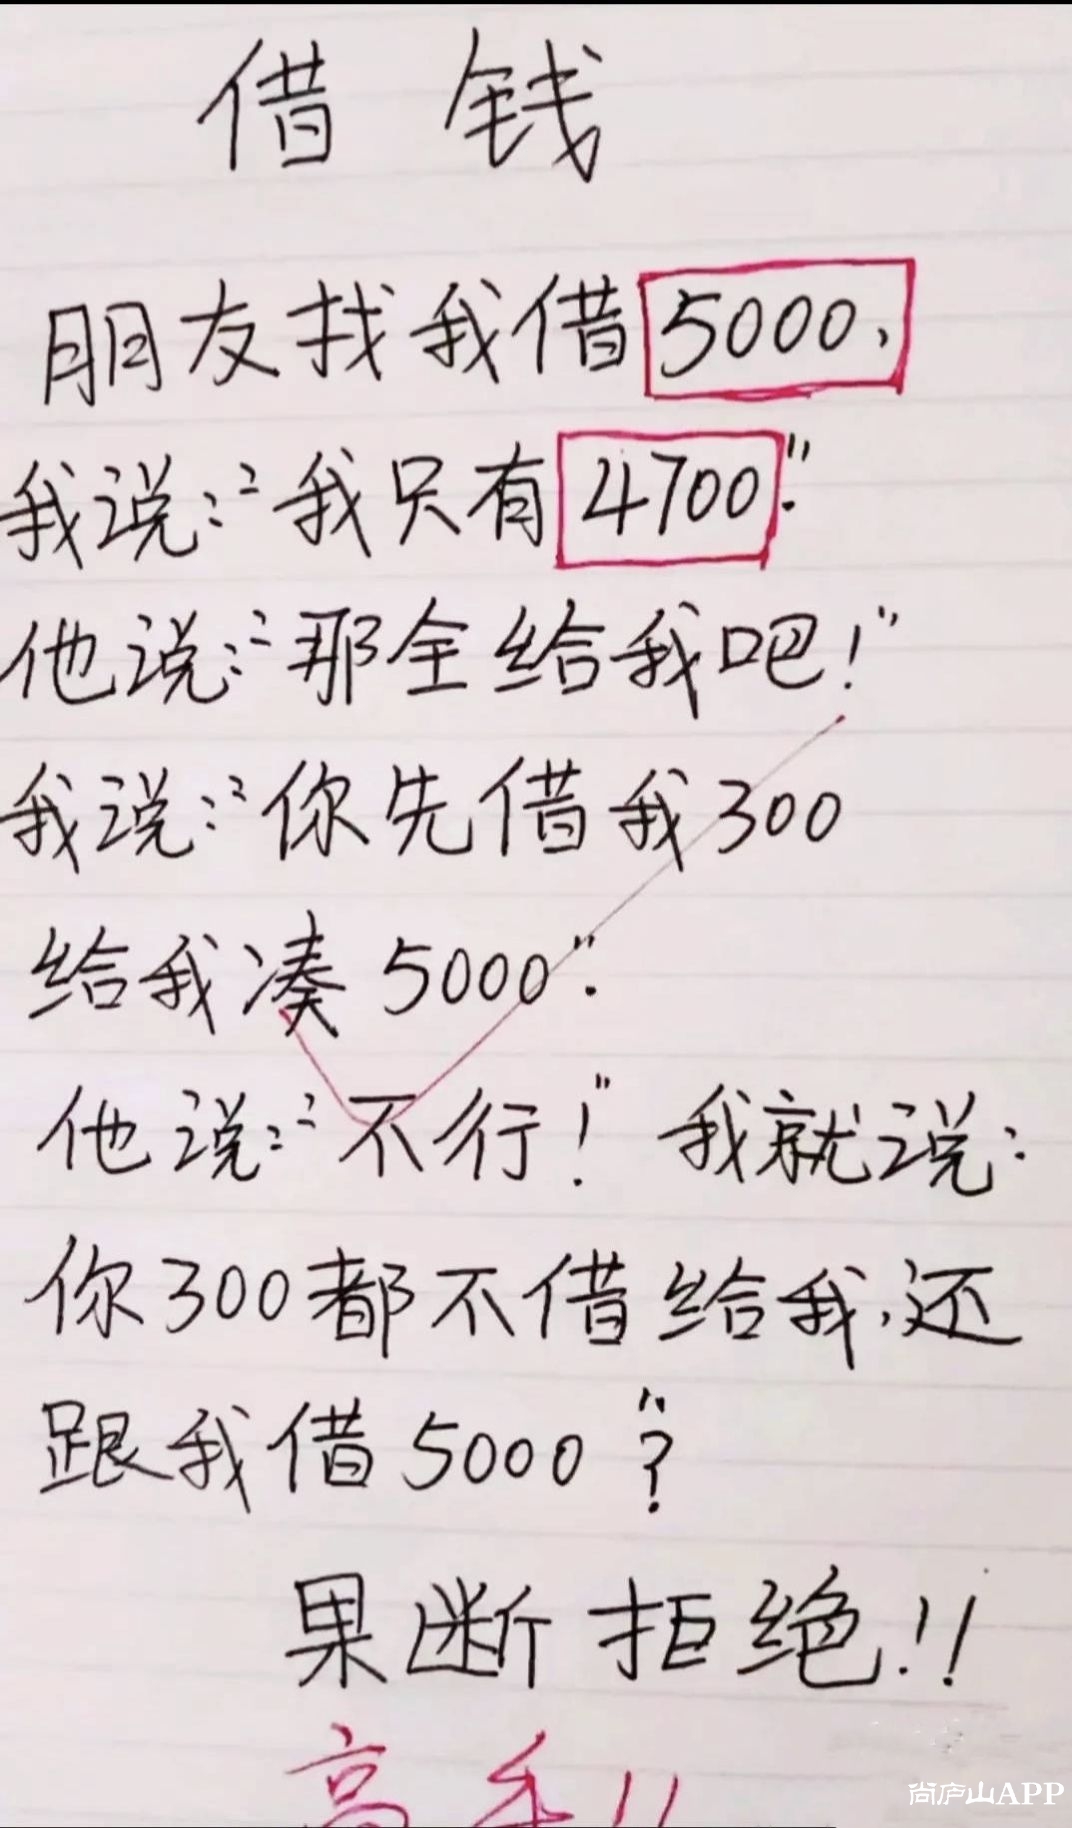 借钱
朋友找我借5000,
我说:“我只有4700”.
他说:“那全给我吧!”
我说:“你先借我300
给我凑5000”.
他说:“不行!”我就说:
你300都不借给我,还
跟我借5000”?
果断拒绝!!
高手!!
尚庐山APP